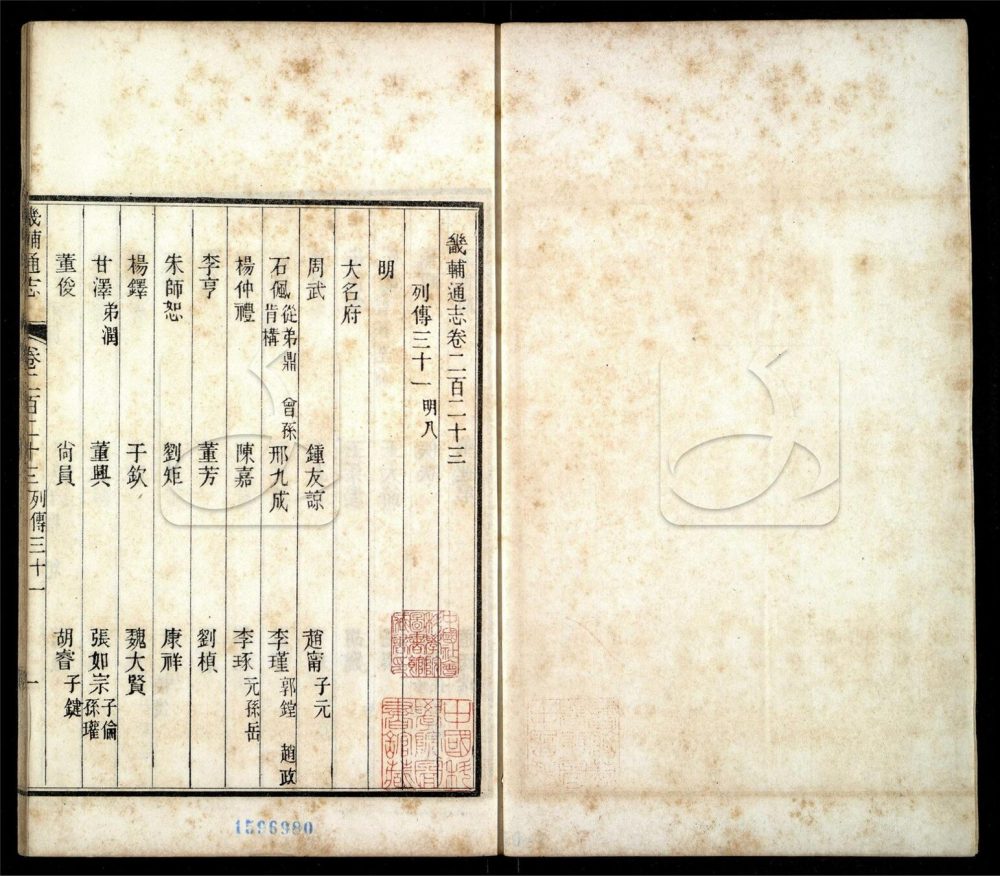 畿輔通志卷二百二十三
列傳三十一 明八
明
大名府
周武 鍾友諒 趙甯 子元
石佩 從弟鼎 曾孫肯構 邢九成 李瑾 郭鏜 趙政
楊仲禮 陳嘉 李琢 元孫岳
李亨 董芳 劉楨
朱師恕 劉矩 康祥
楊鐸 于欽 魏大賢
甘澤 弟潤 董興 張如宗 子倫 孫瓘
董俊 尙員 胡睿 子鍵
畿輔通志 卷二百二十三 列傳三十一 一
1596980